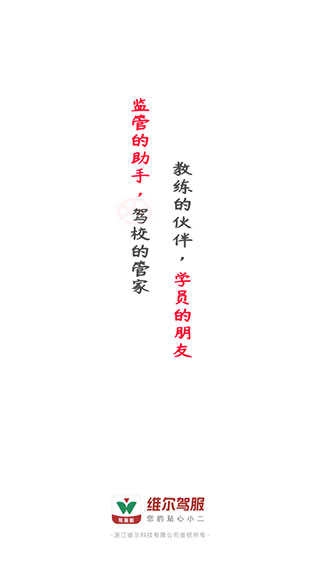 监管的助手，驾校的管家
教练的伙伴，学员的朋友
驾服
维尔驾服
您的贴心小二
·浙江维尔科技有限公司版权所有·